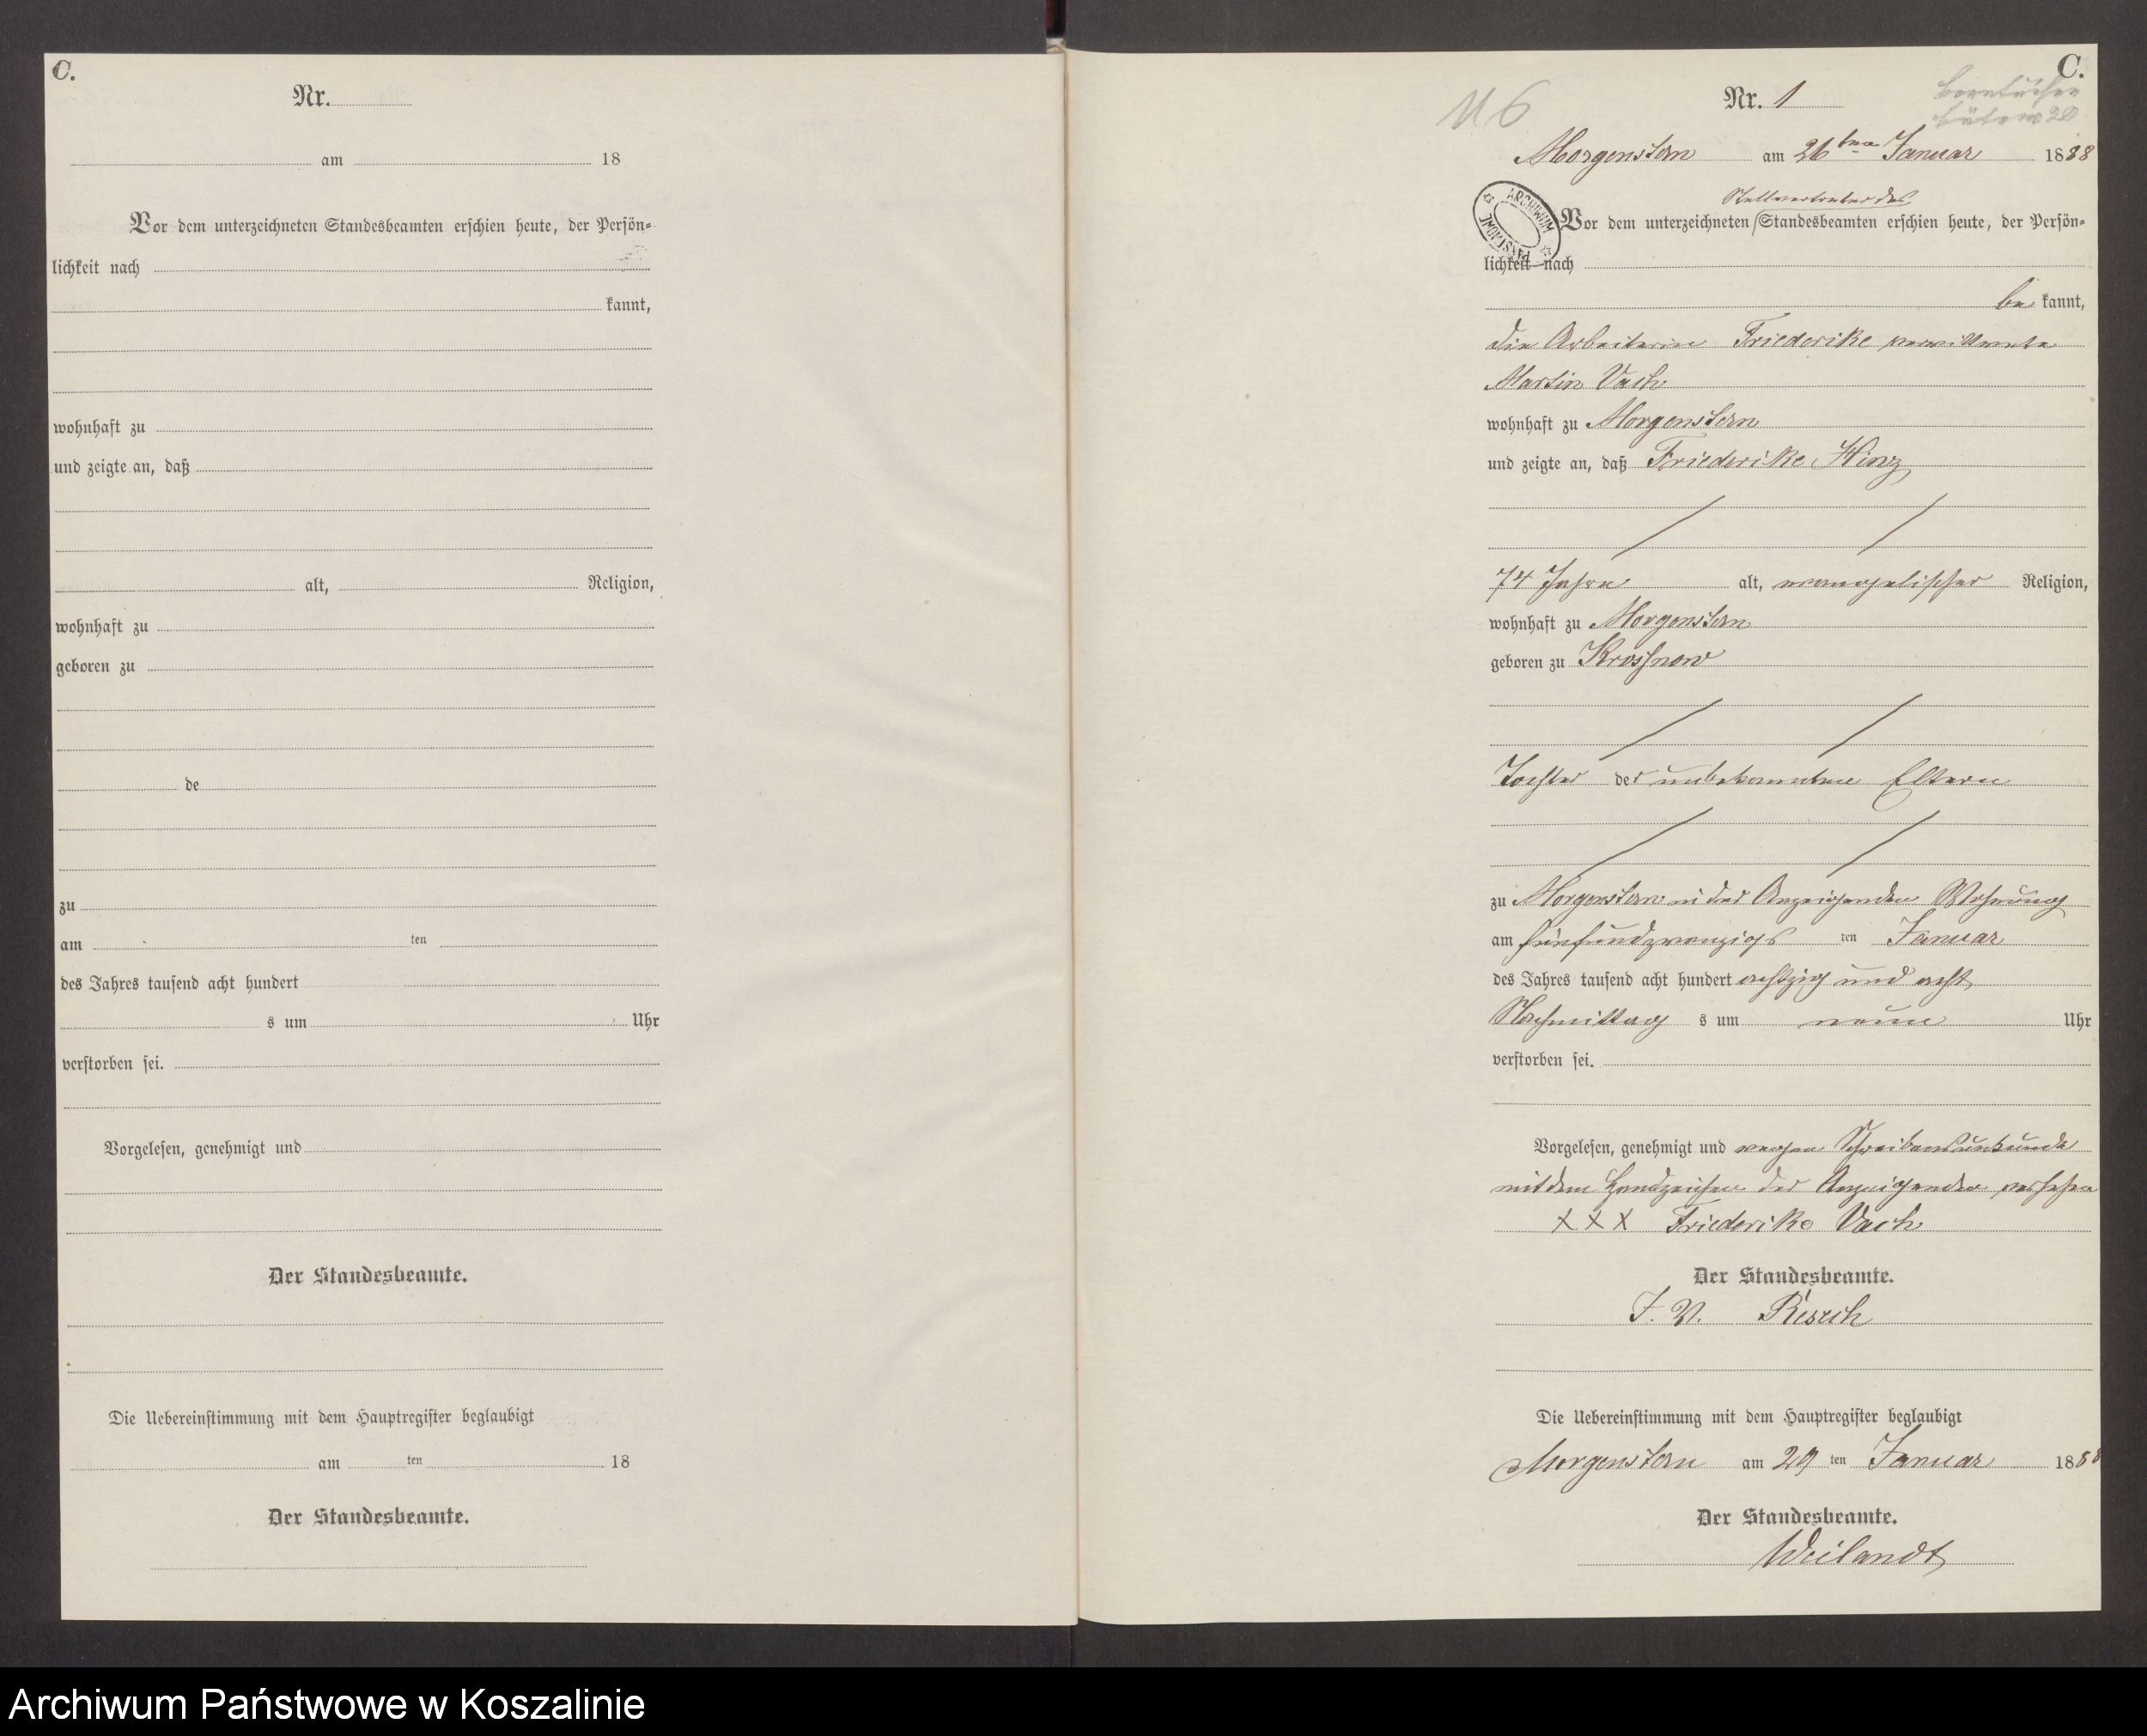 C.
Nr.
am 18
Vor dem unterzeichneten Standesbeamten erschien heute, der Persön-
lichkeit nach
kannt,
wohnhaft zu
und zeigte an, daß
alt, Religion,
wohnhaft zu
geboren zu
de
zu
am ten
des Jahres tausend acht hundert
s um Uhr
verstorben sei.
Vorgelesen, genehmigt und
Der Standesbeamte.
Die Uebereinstimmung mit dem Hauptregister beglaubigt
am ten 18
Der Standesbeamte.
C.
Nr. 1
Morgenstern am 26ten Januar 1888
Stellvertreter des
Vor dem unterzeichneten Standesbeamten erschien heute, der Persön-
ARCHIWUM PAŃSTWOWE
lichkeit nach
be kannt,
die Arbeiterin Friederike verwittwete
Martin Vach
wohnhaft zu Morgenstern
und zeigte an, daß Friederike Hinz
74 Jahre alt, evangelischer Religion,
wohnhaft zu Morgenstern
geboren zu Krossnow
Tochter der unbekannten Eltern
zu Morgenstern in der Anzeigenden Wohnung
am fünfundzwanzigs ten Januar
des Jahres tausend acht hundert achtzig und acht
Nachmittag s um neun Uhr
verstorben sei.
Vorgelesen, genehmigt und wegen Schreibensunkunde
mit dem Handzeichen der Anzeigenden versehen
XXX Friederike Vach
Der Standesbeamte.
J. V.
Die Uebereinstimmung mit dem Hauptregister beglaubigt
Morgenstern am 29 ten Januar 1888
Der Standesbeamte.
Weilandt
Archiwum Państwowe w Koszalinie